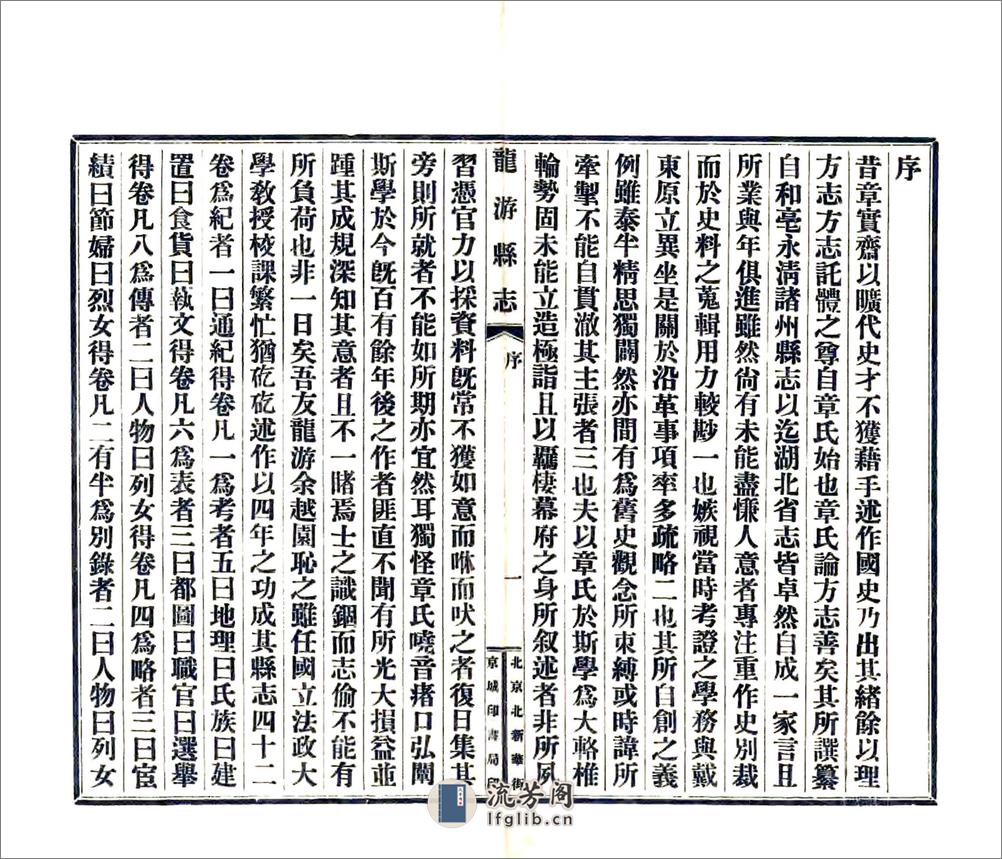 序
昔章實齋以曠代史才不獲藉手述作國史乃出其緒餘以理
方志方志託體之尊自章氏始也章氏論方志善矣其所譔纂
自和亳永淸諸州縣志以迄湖北省志皆卓然自成一家言且
所業與年俱進雖然尙有未能盡慊人意者專注重作史別裁
而於史料之蒐輯用力較尠一也嫉視當時考證之學務與戴
東原立異坐是關於沿革事項率多疏略二也其所自創之義
例雖泰半精思獨闢然亦間有爲舊史觀念所束縛或時諱所
牽掣不能自貫澈其主張者三也夫以章氏於斯學爲大輅椎
輪勢固未能立造極詣且以羈棲幕府之身所叙述者非所夙
龍游縣志
序
一
北京北新華街
京城印書局印
習憑官力以採資料旣常不獲如意而咻而吠之者復日集其
旁則所就者不能如所期亦宜然耳獨怪章氏嘵音瘏口弘闡
斯學於今旣百有餘年後之作者匪直不聞有所光大損益並
踵其成規深知其意者且不一睹焉士之識錮而志偷不能有
所負荷也非一日矣吾友龍游余越園恥之雖任國立法政大
學敎授校課繁忙猶矻矻述作以四年之功成其縣志四十二
卷爲紀者一曰通紀得卷凡一爲考者五曰地理曰氏族曰建
置曰食貨曰執文得卷凡六爲表者三曰都圖曰職官曰選舉
得卷凡八爲傳者二曰人物曰列女得卷凡四爲略者三曰宦
績曰節婦曰烈女得卷凡二有半爲別錄者二曰人物曰列女
流芳阁
lfglib.cn